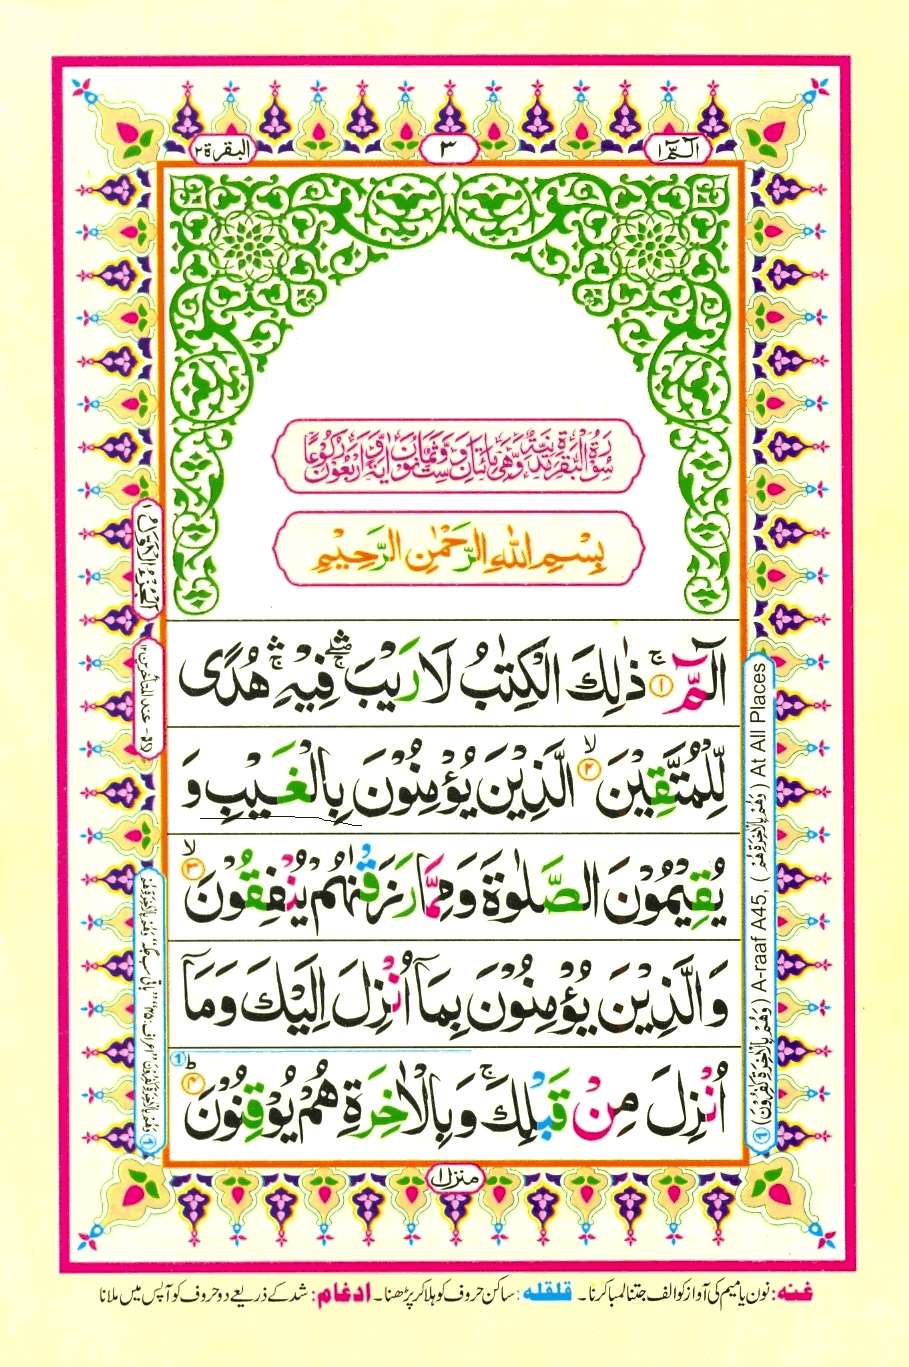 الٓمّٓ ١
٣
البقرة ٢
سُوْرَةُ الْبَقَرَةِ مَدَنِيَّةٌ وَّهِیَ مِائَتَانِ وَسِتٌّ وَّثَمَانُوْنَ اٰيَةً وَّاَرْبَعُوْنَ رُكُوْعًا
بِسْمِ اللّٰهِ الرَّحْمٰنِ الرَّحِيْمِ
الٓمّٓ ۚ ١ ذٰلِكَ الْكِتٰبُ لَا رَيْبَ ۛۖۚ فِيْهِ ۛۚ هُدًى
لِّلْمُتَّقِيْنَ ۙ ٢ الَّذِيْنَ يُؤْمِنُوْنَ بِالْغَيْبِ وَ
يُقِيْمُوْنَ الصَّلٰوةَ وَمِمَّا رَزَقْنٰهُمْ يُنْفِقُوْنَ ۙ ٣
وَالَّذِيْنَ يُؤْمِنُوْنَ بِمَآ اُنْزِلَ اِلَيْكَ وَمَآ
اُنْزِلَ مِنْ قَبْلِكَ ۚ وَبِالْاٰخِرَةِ هُمْ يُوْقِنُوْنَ ؕ ٤ ①
الجزء الاول ١
① (وَهُمْ بِالْاٰخِرَةِ كٰفِرُوْنَ) A-raaf A45, (وَهُمْ بِالْاٰخِرَةِ هُمْ) At All Places
منزل ١
غنه: نون یا میم کی آواز کو الف جتنا لمبا کرنا۔ قلقله: ساکن حروف کو ہلا کر پڑھنا۔ ادغام: شد کے ذریعے دو حروف کو آپس میں ملانا